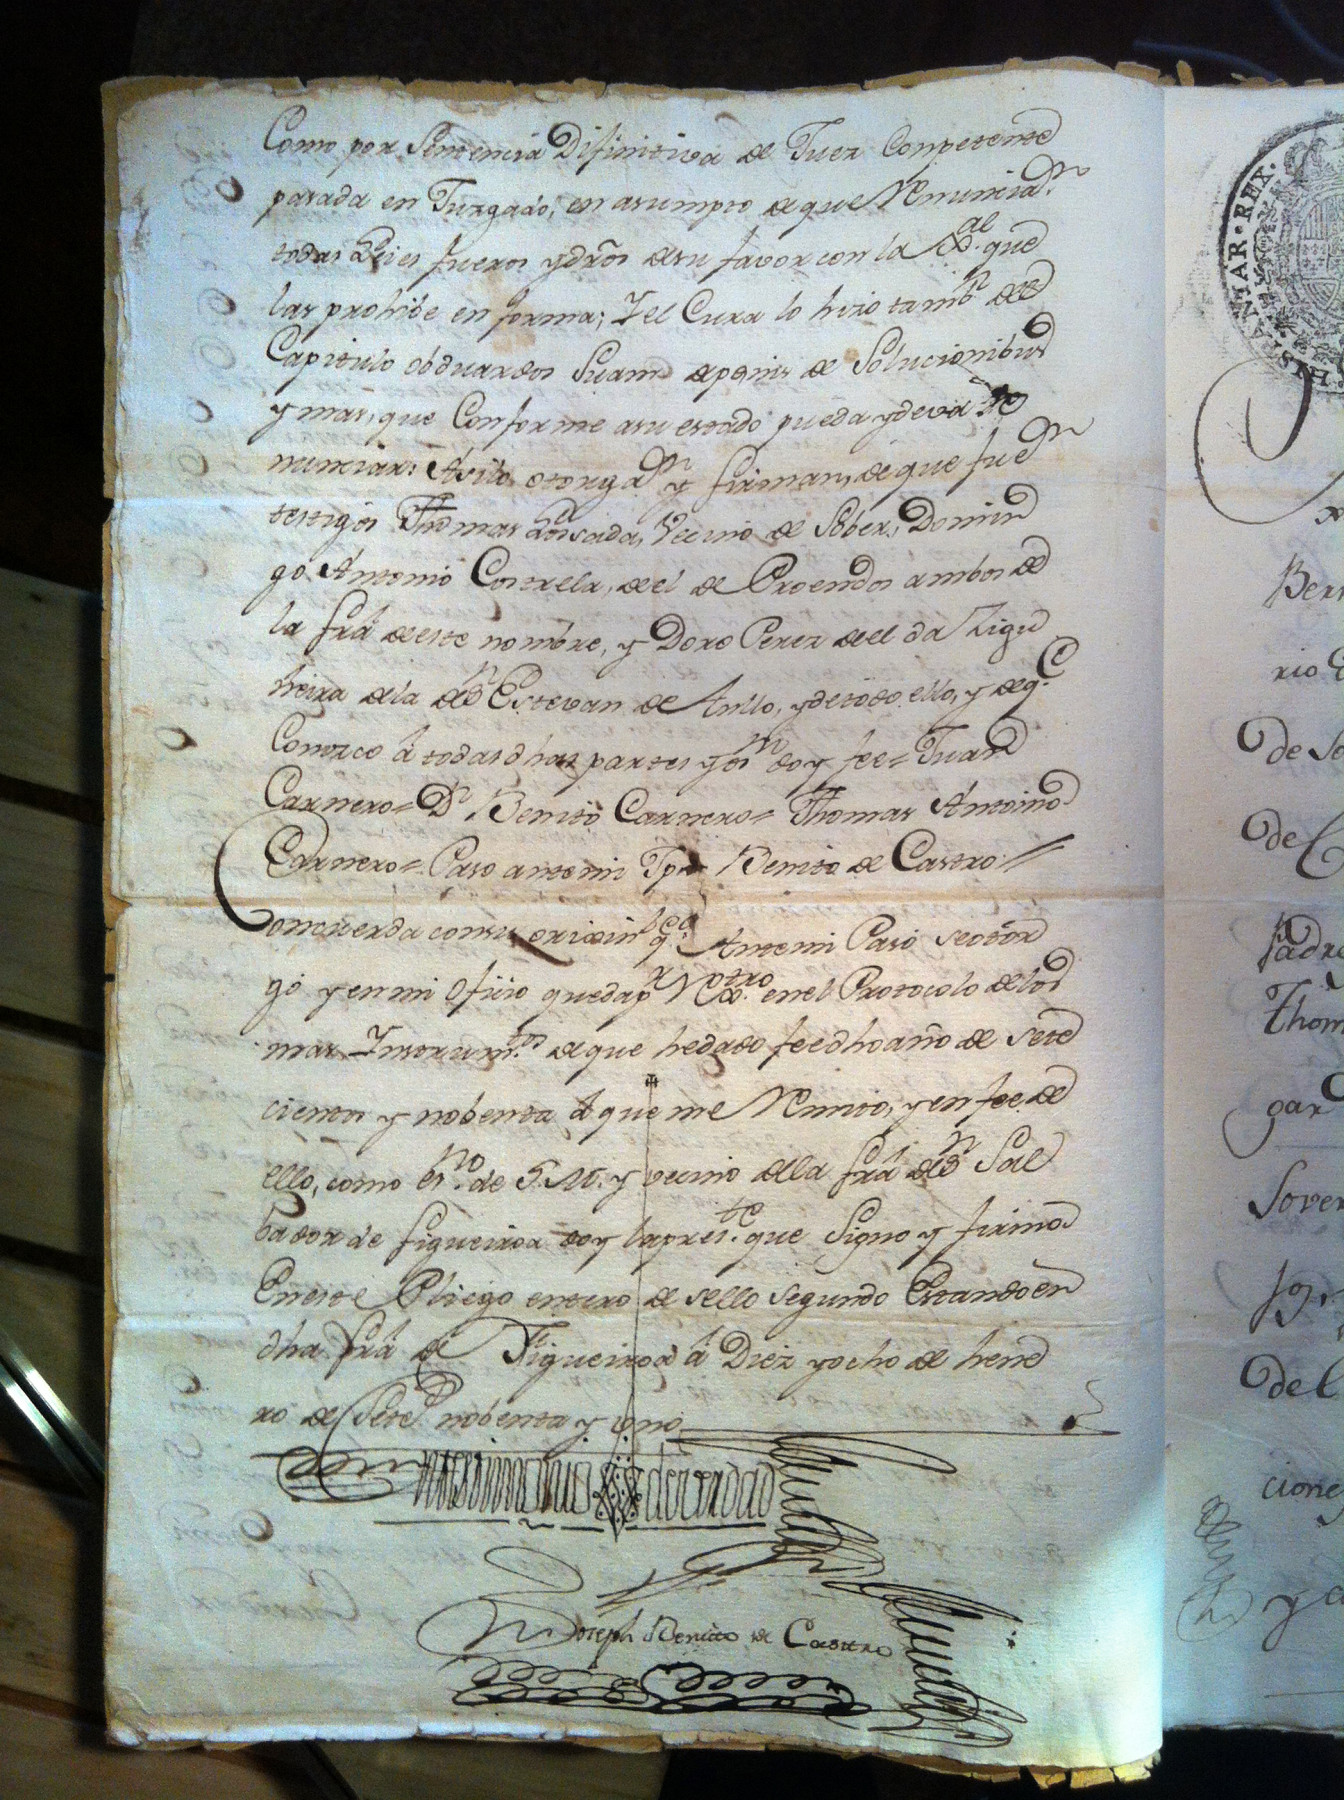 Como por Sentencia Difinitiva de Juez Conpetente
pasada en Juzgado, en asumpto de que Renuncian
todas Leies fueros y dros̃ de su favor con la Gral. que
las prohibe en forma; Y el Cura lo hizo tambn. del
Capitulo obduardos Suam de penis de Solucionibus
y mas, que Conforme a su estado pueda y deva Re
nunciar: Asi lo otorgan y firman, de que fuen
testigos Thomas Losada, Vecino de Sober, Domin
go Antonio Costrela, del de Proendos ambos de
la frã de este nombre, y Doro Perez del da Zigu
heira de la de Sn Estevan de Anllo, y de todo ello, y de q.e
Conozco â todas dhas partes y doy fee= Juan
Carnero= Dn. Benito Carnero= Thomas Antonio
Carnero= Paso antemi Jph Benito de Castro=
Concuerda con su orixinl. q.e Antemi Paso se otor
gó y en mi Oficio queda pr Rxtro. en el Protocolo de los
mas Instrumtos. de que he dado fee dho año de Sete
cientos y nobenta â que me Remito, y en fee de
ello, como esno. de S.M. y vecino de la frã de Sn Sal
bador de Figueiroa doy la preste. que Signo y firmo
En este Pliego entero de sello segundo Estando en
dha frã de Figueiroa â Diez y ocho de hene
ro de Sete. nobenta y uno
En testimonio de verdad
Joseph Benito de Castro
HISPANIAR·REX·
Ber
rio
de So
de C
Padre
Thom
gar
Sover
de l
cione
y